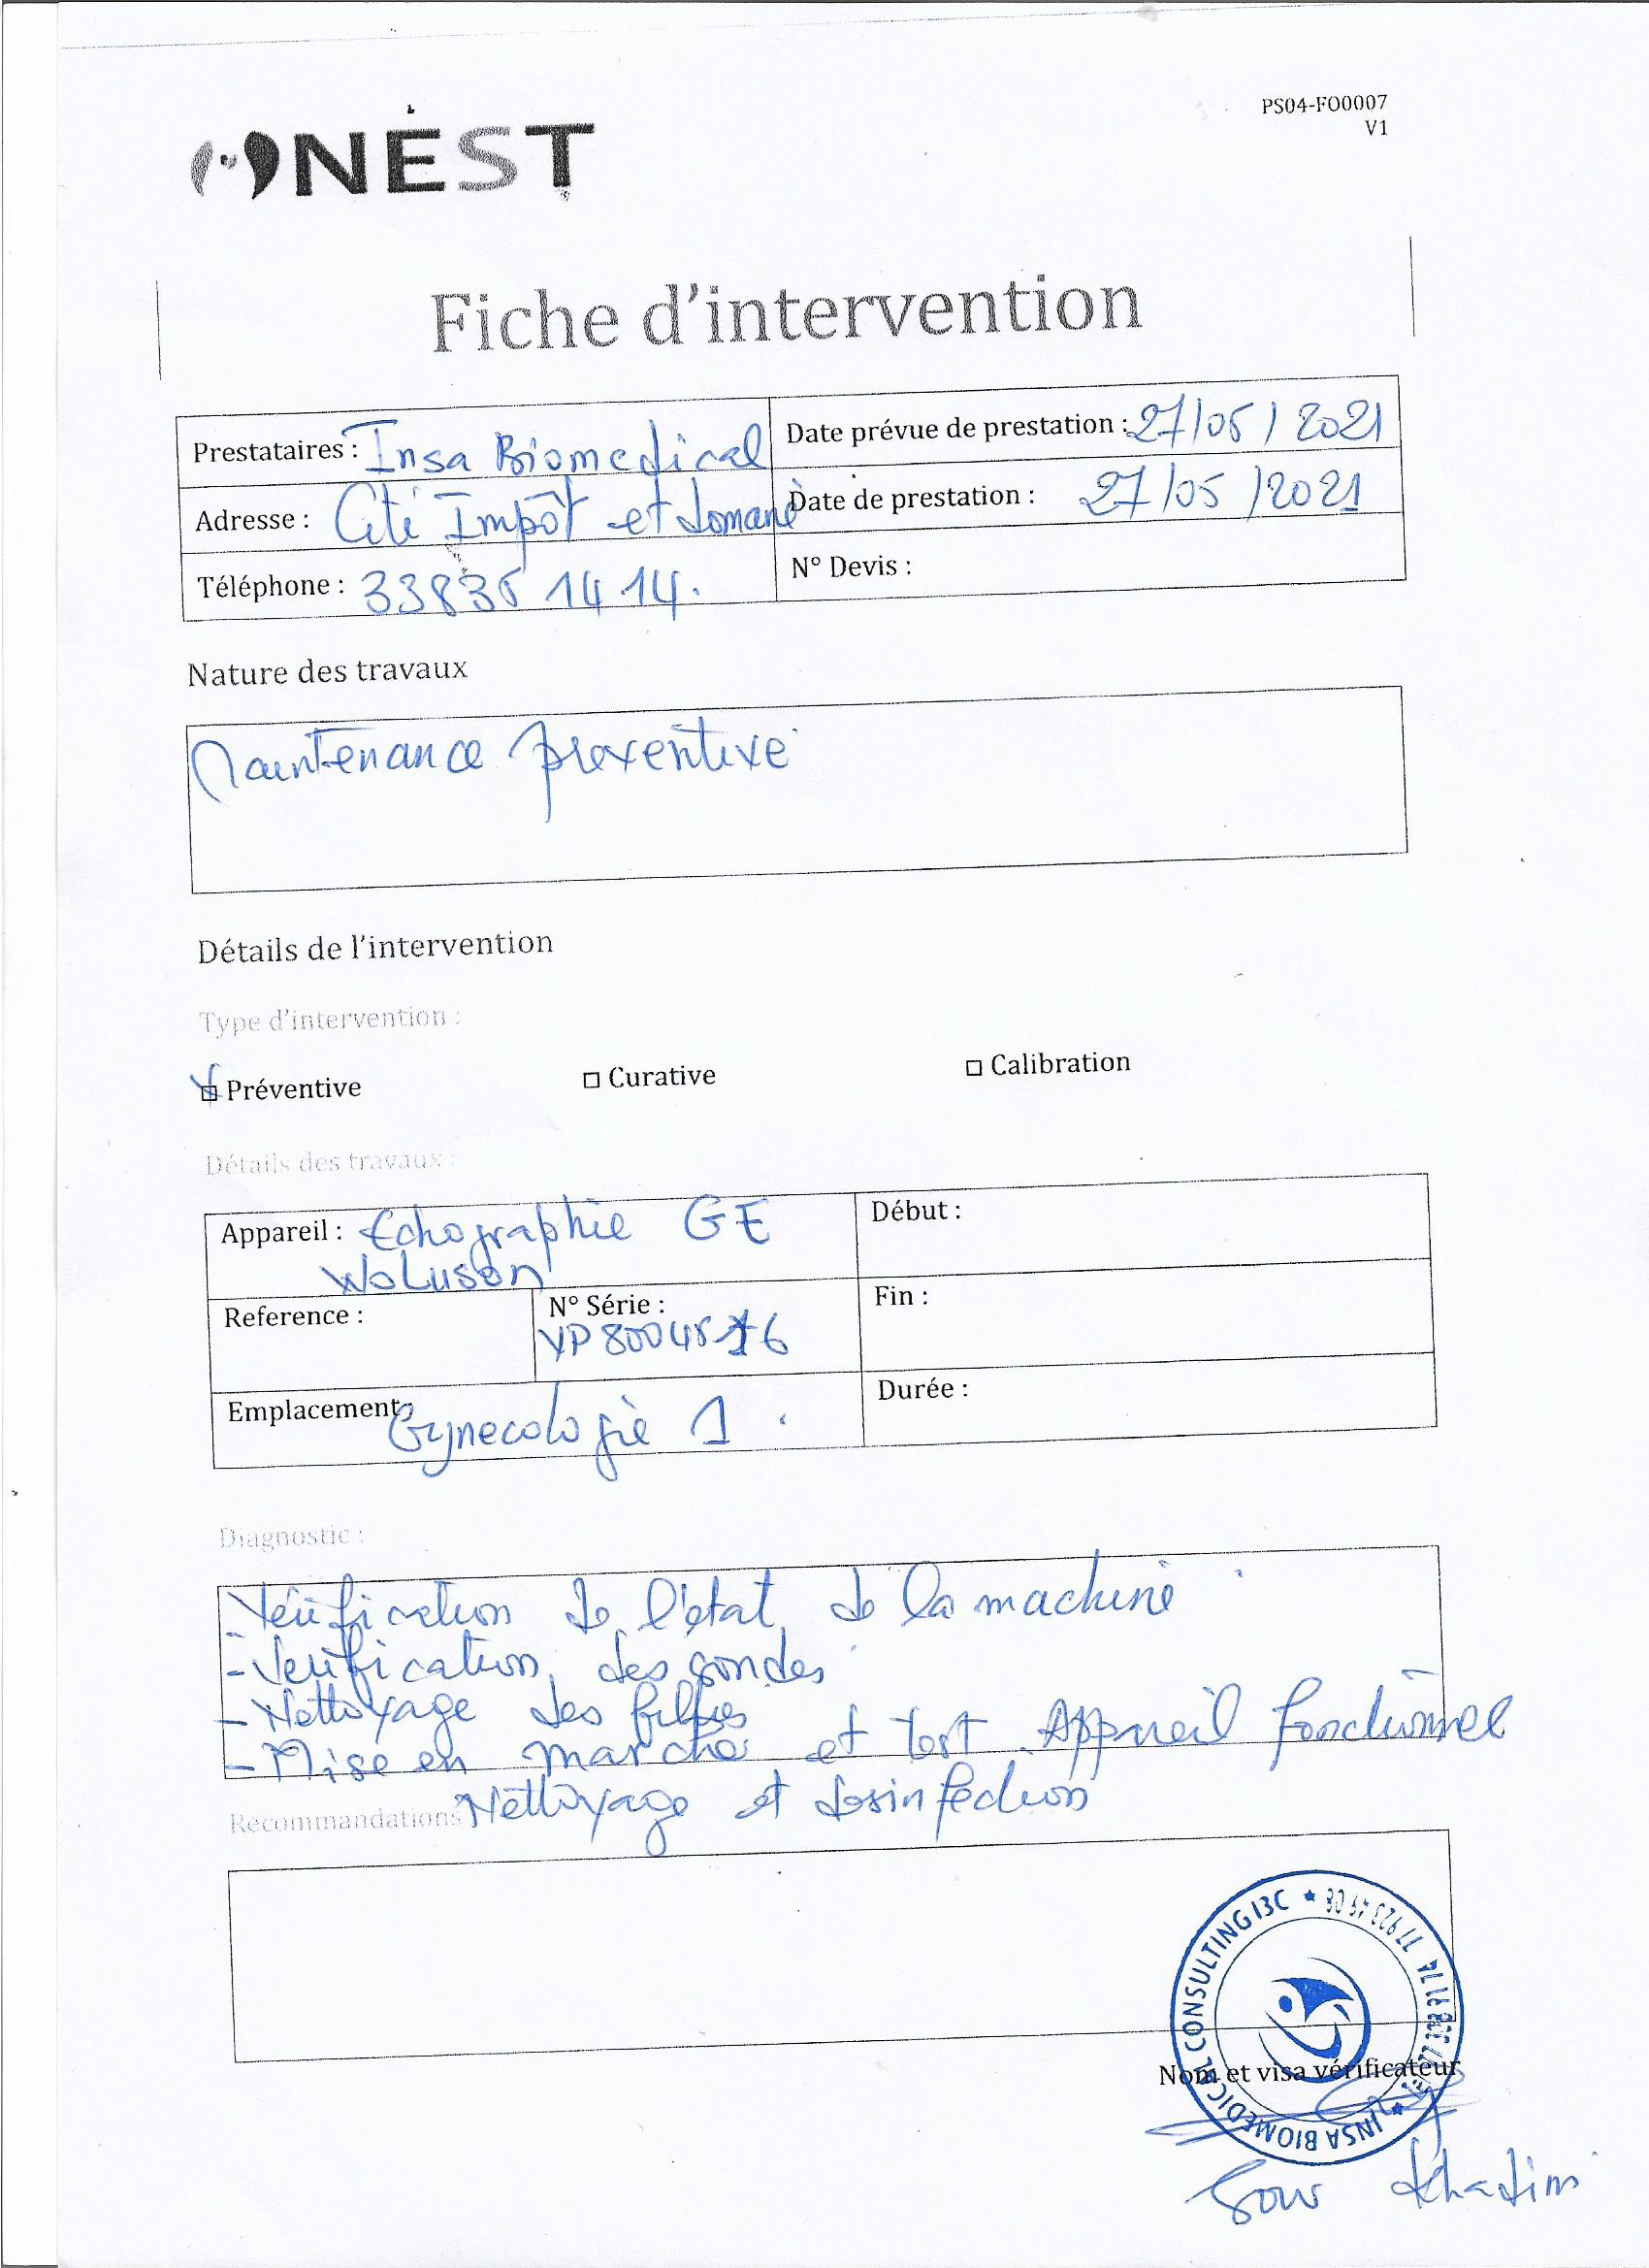 PS04-FO0007
V1
NEST
Fiche d'intervention
Prestataires : Insa Biomedical
Date prévue de prestation : 27/05/2021
Adresse : Cité Impôt et domane
Date de prestation : 27/05/2021
Téléphone : 33835 14 14.
N° Devis :
Nature des travaux
Maintenance preventive
Détails de l'intervention
Type d'intervention :
Préventive
Curative
Calibration
Détails des travaux :
Appareil : Echographie GE
Woluson
Début :
Reference :
N° Série :
Fin :
Emplacement : Gynecologie 1
Durée :
Diagnostic :
- Verification de l'état de la machine
- Verification des sondes
- Nettoyage des filtres
- Mise en marche et test. Appareil fonctionnel
Nettoyage et desinfection
Recommandations
INSA BIOMEDICAL CONSULTING I3C
77 923 49 08
Nom et visa vérificateur
Sow Khadim